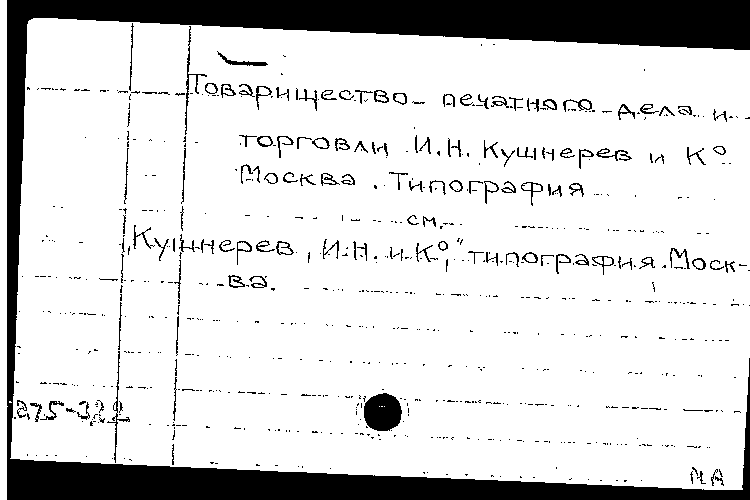 Товарищество печатного дела и
торговли И.Н. Кушнерев и К°
Москва. Типография
см.
„Кушнерев, И.Н. и К°," типография. Моск-
ва.
275-322
МА